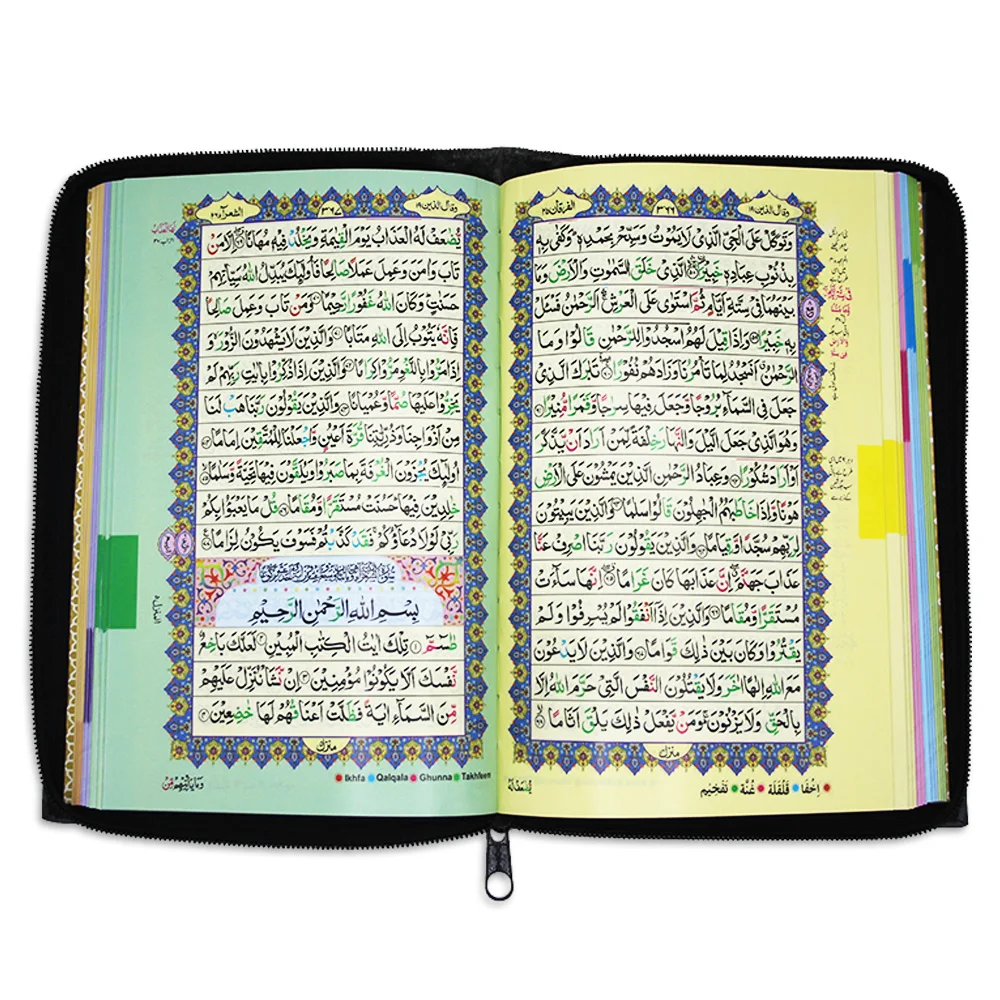 وقال الذین ١٩
٣٦٦
الفرقان ٢٥
وَتَوَكَّلْ عَلَى الْحَىِّ الَّذِىْ لَا يَمُوْتُ وَسَبِّحْ بِحَمْدِهٖ ؕ وَكَفٰى بِهٖ
بِذُنُوْبِ عِبَادِهٖ خَبِيْرًا ۛۚ ﴿۵۸﴾ الَّذِىْ خَلَقَ السَّمٰوٰتِ وَالْاَرْضَ وَمَا
بَيْنَهُمَا فِىْ سِتَّةِ اَيَّامٍ ثُمَّ اسْتَوٰى عَلَى الْعَرْشِ ۛۚ اَلرَّحْمٰنُ فَسْئَلْ
بِهٖ خَبِيْرًا ﴿۵۹﴾ وَاِذَا قِيْلَ لَهُمُ اسْجُدُوْا لِلرَّحْمٰنِ قَالُوْا وَمَا
الرَّحْمٰنُ ۗ اَنَسْجُدُ لِمَا تَاْمُرُنَا وَزَادَهُمْ نُفُوْرًا ۩ ﴿۶۰﴾ تَبٰرَكَ الَّذِىْ
جَعَلَ فِى السَّمَآءِ بُرُوْجًا وَّجَعَلَ فِيْهَا سِرٰجًا وَّقَمَرًا مُّنِيْرًا ﴿۶۱﴾
وَهُوَ الَّذِىْ جَعَلَ الَّيْلَ وَالنَّهَارَ خِلْفَةً لِّمَنْ اَرَادَ اَنْ يَّذَّكَّرَ
اَوْ اَرَادَ شُكُوْرًا ﴿۶۲﴾ وَعِبَادُ الرَّحْمٰنِ الَّذِيْنَ يَمْشُوْنَ عَلَى الْاَرْضِ
هَوْنًا وَّاِذَا خَاطَبَهُمُ الْجٰهِلُوْنَ قَالُوْا سَلٰمًا ﴿۶۳﴾ وَالَّذِيْنَ يَبِيْتُوْنَ
لِرَبِّهِمْ سُجَّدًا وَّقِيَامًا ﴿۶۴﴾ وَالَّذِيْنَ يَقُوْلُوْنَ رَبَّنَا اصْرِفْ عَنَّا
عَذَابَ جَهَنَّمَ ۖ اِنَّ عَذَابَهَا كَانَ غَرَامًا ﴿۶۵﴾ اِنَّهَا سَآءَتْ
مُسْتَقَرًّا وَّمُقَامًا ﴿۶۶﴾ وَالَّذِيْنَ اِذَاۤ اَنْفَقُوْا لَمْ يُسْرِفُوْا وَلَمْ
يَقْتُرُوْا وَكَانَ بَيْنَ ذٰلِكَ قَوَامًا ﴿۶۷﴾ وَالَّذِيْنَ لَا يَدْعُوْنَ
مَعَ اللّٰهِ اِلٰهًا اٰخَرَ وَلَا يَقْتُلُوْنَ النَّفْسَ الَّتِىْ حَرَّمَ اللّٰهُ اِلَّا
بِالْحَقِّ وَلَا يَزْنُوْنَ ۚ وَمَنْ يَّفْعَلْ ذٰلِكَ يَلْقَ اَثَامًا ﴿۶۸﴾
منزل
يُضٰعَفْ لَهُ
اِخْفَا قَلْقَلَه غُنَّه تَفْخِيْم
وقال الذین ١٩
٣٦٧
الشعرآء ٢٦
يُّضٰعَفْ لَهُ الْعَذَابُ يَوْمَ الْقِيٰمَةِ وَيَخْلُدْ فِيْهٖ مُهَانًا ﴿۶۹﴾ اِلَّا مَنْ
تَابَ وَاٰمَنَ وَعَمِلَ عَمَلًا صَالِحًا فَاُولٰٓئِكَ يُبَدِّلُ اللّٰهُ سَيِّاٰتِهِمْ
حَسَنٰتٍ ؕ وَكَانَ اللّٰهُ غَفُوْرًا رَّحِيْمًا ﴿۷۰﴾ وَمَنْ تَابَ وَعَمِلَ صَالِحًا
فَاِنَّهٗ يَتُوْبُ اِلَى اللّٰهِ مَتَابًا ﴿۷۱﴾ وَالَّذِيْنَ لَا يَشْهَدُوْنَ الزُّوْرَ ۙ وَ
اِذَا مَرُّوْا بِاللَّغْوِ مَرُّوْا كِرَامًا ﴿۷۲﴾ وَالَّذِيْنَ اِذَا ذُكِّرُوْا بِاٰيٰتِ رَبِّهِمْ لَمْ
يَخِرُّوْا عَلَيْهَا صُمًّا وَّعُمْيَانًا ﴿۷۳﴾ وَالَّذِيْنَ يَقُوْلُوْنَ رَبَّنَا هَبْ لَنَا
مِنْ اَزْوَاجِنَا وَذُرِّيّٰتِنَا قُرَّةَ اَعْيُنٍ وَّاجْعَلْنَا لِلْمُتَّقِيْنَ اِمَامًا ﴿۷۴﴾
اُولٰٓئِكَ يُجْزَوْنَ الْغُرْفَةَ بِمَا صَبَرُوْا وَيُلَقَّوْنَ فِيْهَا تَحِيَّةً وَّسَلٰمًا ﴿۷۵﴾
خٰلِدِيْنَ فِيْهَا ؕ حَسُنَتْ مُسْتَقَرًّا وَّمُقَامًا ﴿۷۶﴾ قُلْ مَا يَعْبَؤُا بِكُمْ
رَبِّىْ لَوْ لَا دُعَآؤُكُمْ ۚ فَقَدْ كَذَّبْتُمْ فَسَوْفَ يَكُوْنُ لِزَامًا ﴿۷۷﴾
بِسْمِ اللّٰهِ الرَّحْمٰنِ الرَّحِيْمِ
طٰسٓمّٓ ﴿۱﴾ تِلْكَ اٰيٰتُ الْكِتٰبِ الْمُبِيْنِ ﴿۲﴾ لَعَلَّكَ بَاخِعٌ
نَّفْسَكَ اَلَّا يَكُوْنُوْا مُؤْمِنِيْنَ ﴿۳﴾ اِنْ نَّشَاْ نُنَزِّلْ عَلَيْهِمْ
مِّنَ السَّمَآءِ اٰيَةً فَظَلَّتْ اَعْنَاقُهُمْ لَهَا خٰضِعِيْنَ ﴿۴﴾
منزل
وَمَا يَاْتِيْهِمْ مِّنْ
Ikhfa Qalqala Ghunna Takhfeem